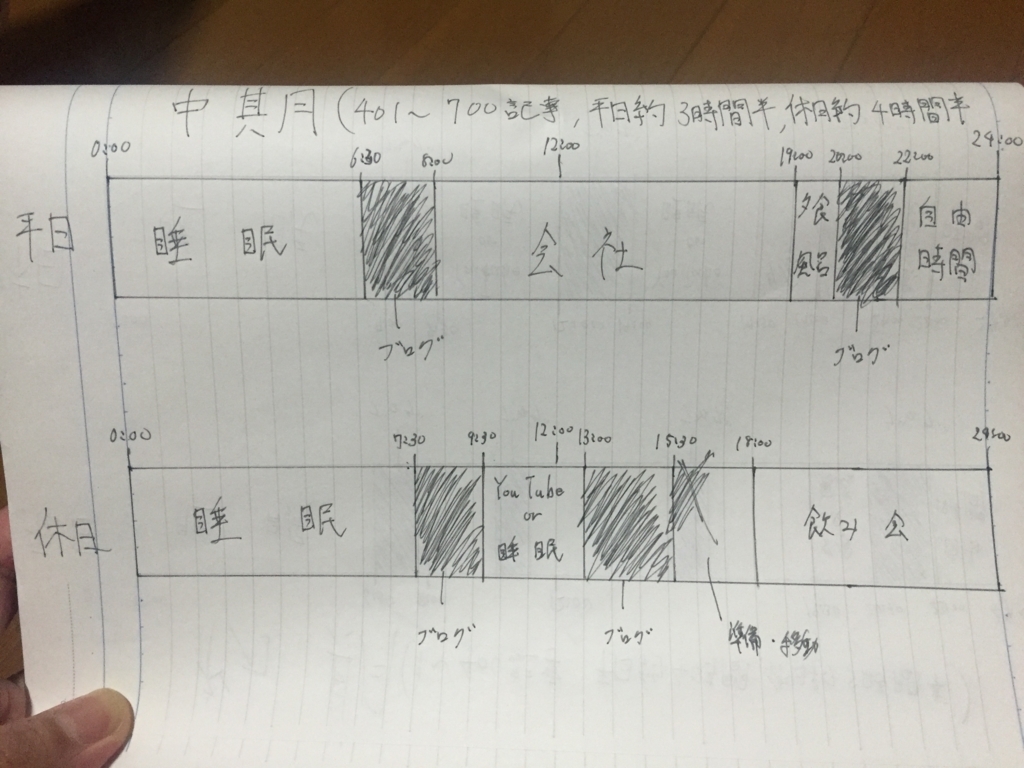 中期(401～700記事,平日約3時間半,休日約4時間半
0:00 6:30 8:00 12:00 19:00 20:00 22:00 24:00
平日 睡眠 会社 夕食 風呂 自由時間
ブログ ブログ
0:00 7:30 9:30 12:00 13:00 15:30 18:00 24:00
休日 睡眠 You Tube or 睡眠 飲み会
ブログ ブログ 準備・移動